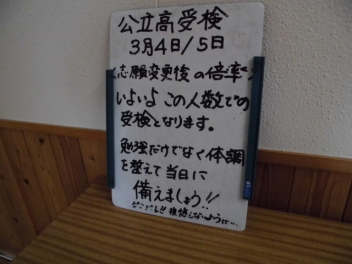 公立高受検
3月4日/5日
〈志願変更後の倍率〉
いよいよこの人数での
受検となります。
勉強だけでなく体調
を整えて当日に
備えましょう!!
後悔しないように…